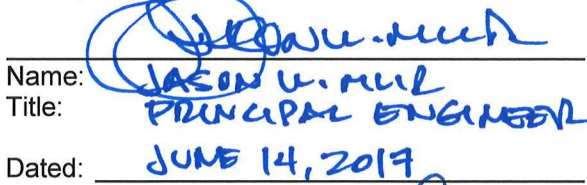 Jason W. Muir
Name: JASON W. MUIR
Title: PRINCIPAL ENGINEER
Dated: JUNE 14, 2017